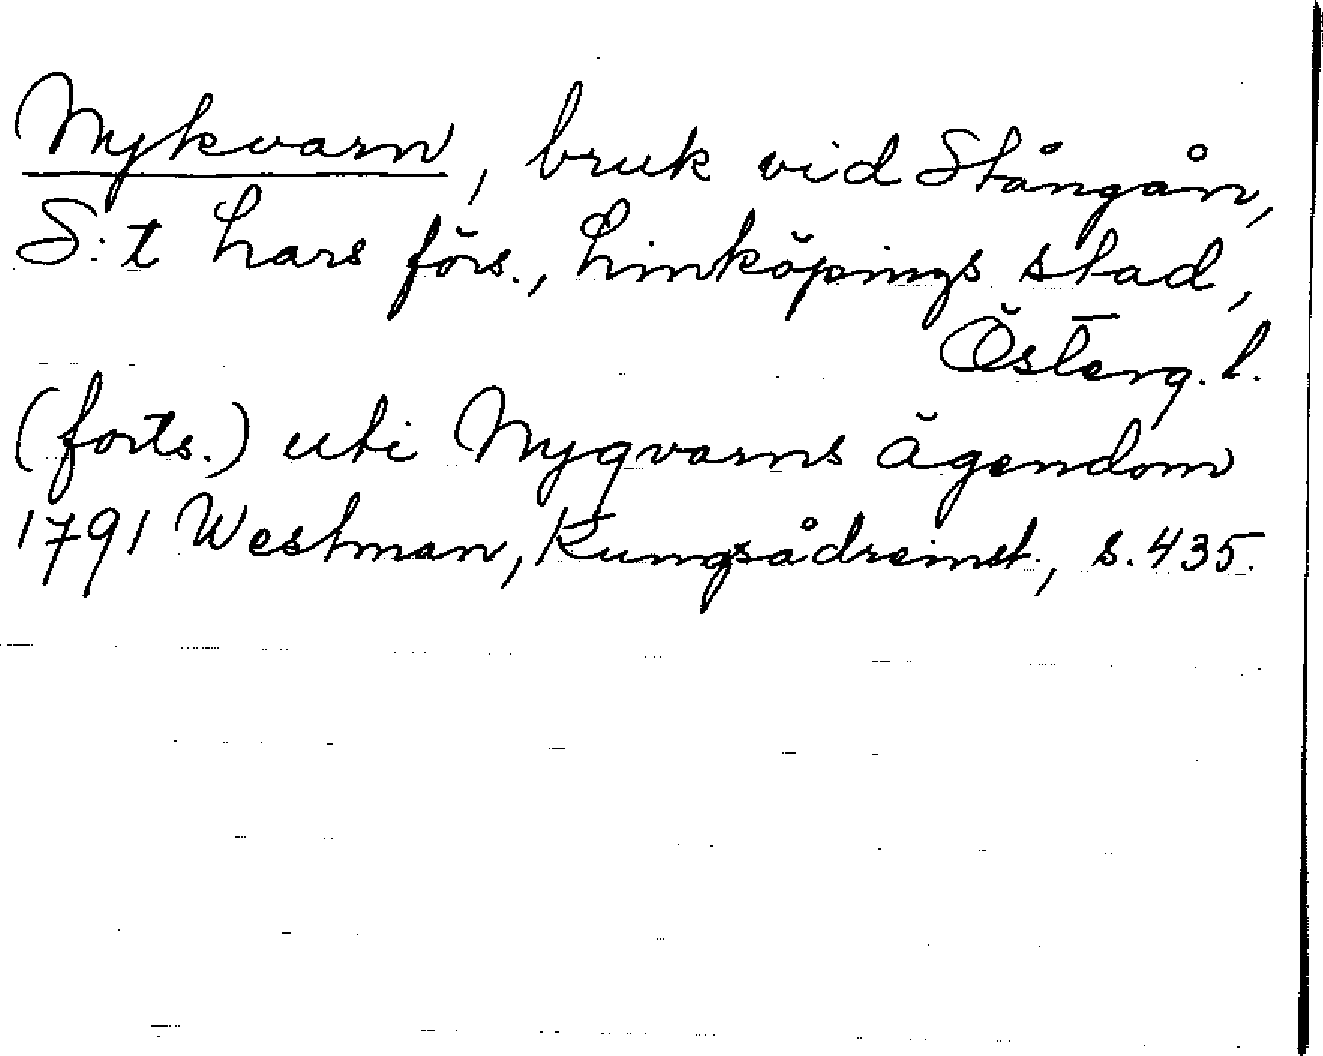 Nykvarn, bruk vid Stångån,
S:t Lars förs., Linköpings stad,
Österg. l.
(forts.) uti Nyqvarns ägendom
1791 Westman, Kungsådreinst., s. 435.